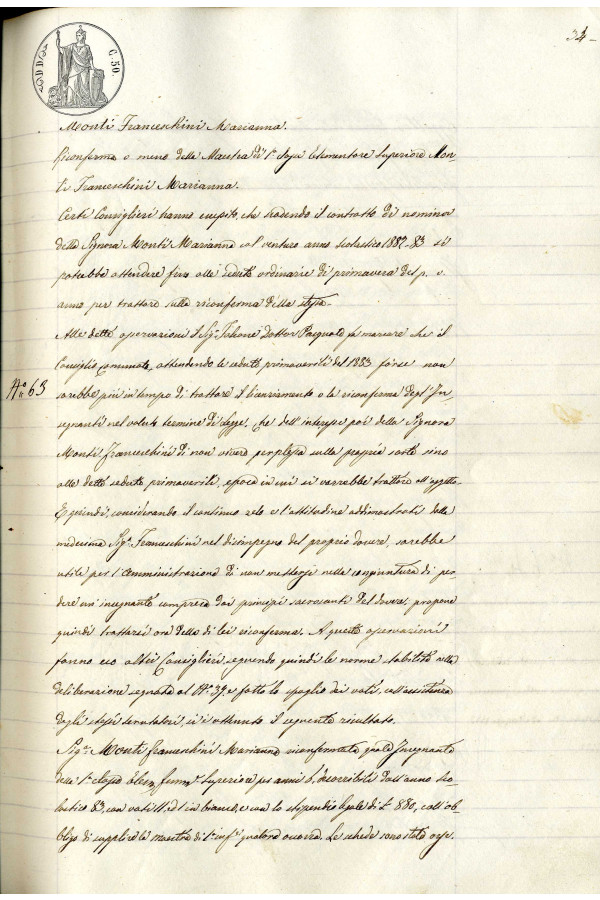 34-
D D
C. 50.
Monti Franceschini Marianna.
Riconferma o meno della Maestra di 1a classe Elementare Superiore Mon-
ti Franceschini Marianna.
Certi Consiglieri hanno esposto, che scadendo il contratto di nomina
della Signora Monti Marianna col venturo anno scolastico 1882-83 si
potrebbe attendere fino alle sedute ordinarie di primavera del p. v.
anno per trattare sulla riconferma della stessa.
Alle dette osservazioni il Sigr. Dottor Pasquale fa marcare che il
Consiglio comunale, attendendo le sedute primaverili del 1883 forse non
No 63
sarebbe più in tempo di trattare il licenziamento o la riconferma degl'In-
segnanti nel voluto termine di Legge, che dell'interesse poi della Signora
Monti Franceschini di non vivere perplessa sulla propria sorte sino
alle dette sedute primaverili, epoca in cui si verrebbe trattare all'oggetto.
E quindi, considerando il continuo zelo e l'attitudine addimostrati dalla
medesima Siga. Franceschini nel disimpegno del proprio dovere, sarebbe
utile per l'Amministrazione di non mettersi nella congiuntura di per-
dere un'insegnante compresa dai principi sacrosanti del dovere, propone
quindi trattarsi ora della di lei riconferma. A queste osservazioni
fanno eco altri Consiglieri, seguendo quindi le norme stabilite nella
deliberazione segnata al No. 39, e fatto lo spoglio dei voti, coll'assistenza
degli stessi scrutatori, si è ottenuto il seguente risultato.
Siga. Monti Franceschini Marianna riconfermata quale Insegnante
della 1a classe Elem. femm. Superiore per anni 6, decorribili dall'anno sco-
lastico 83, con voti 11, ed 1 in bianco, e con lo stipendio legale di L. 880, coll'ob-
bligo di supplire la maestra di 1a inf. qualora occorra. Le schede sono state arse.